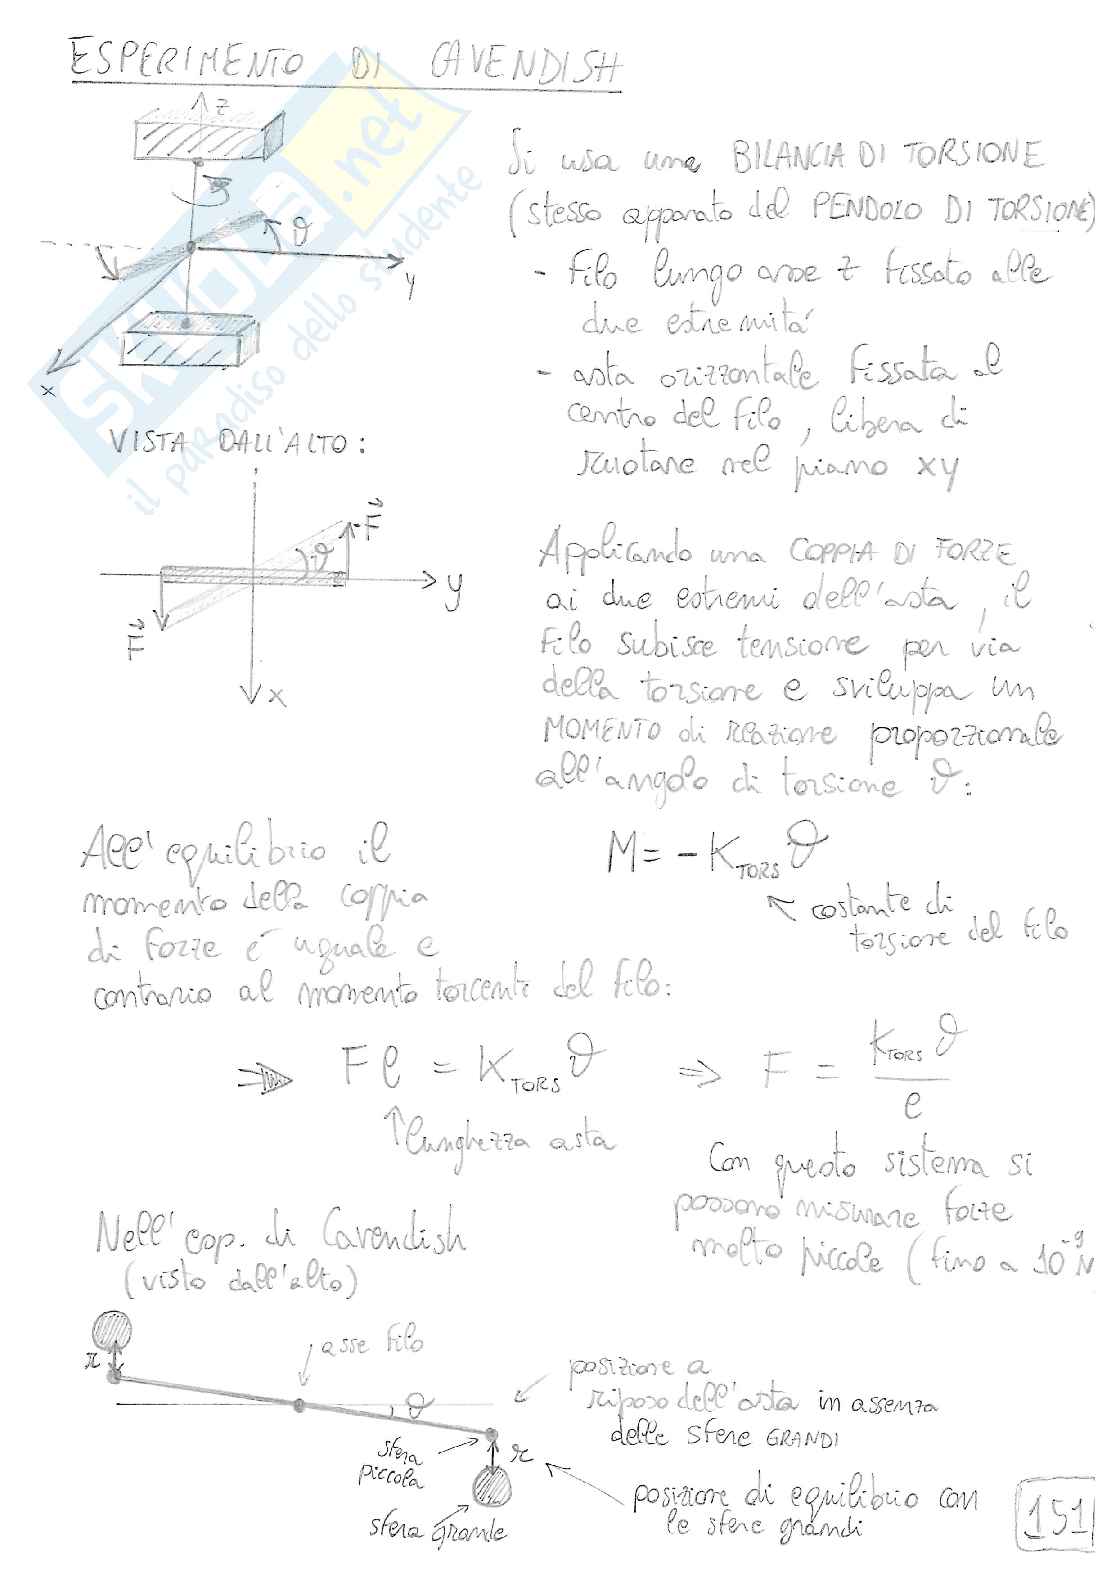 ESPERIMENTO DI CAVENDISH
z
ϑ
y
x
Si usa una BILANCIA DI TORSIONE
(stesso apparato del PENDOLO DI TORSIONE)
- filo lungo asse z fissato alle
due estremità
- asta orizzontale fissata al
centro del filo, libera di
ruotare nel piano xy
VISTA DALL'ALTO:
F
ϑ
y
F
x
Applicando una COPPIA DI FORZE
ai due estremi dell'asta, il
filo subisce tensione per via
della torsione e sviluppa un
MOMENTO di reazione proporzionale
all'angolo di torsione ϑ:
M = - K_TORS ϑ
costante di
torsione del filo
All'equilibrio il
momento della coppia
di forze é uguale e
contrario al momento torcente del filo:
⇒ Fℓ = K_TORS ϑ ⇒ F = K_TORS ϑ / ℓ
↑ lunghezza asta
Con questo sistema si
possono misurare forze
molto piccole (fino a 10⁻⁹ N
Nell'esp. di Cavendish
(visto dall'alto)
r
asse filo
ϑ
posizione a
riposo dell'asta in assenza
delle sfere GRANDI
sfera
piccola
r
sfera grande
posizione di equilibrio con
le sfere grandi
151
SKUOLA.net
il paradiso dello studente